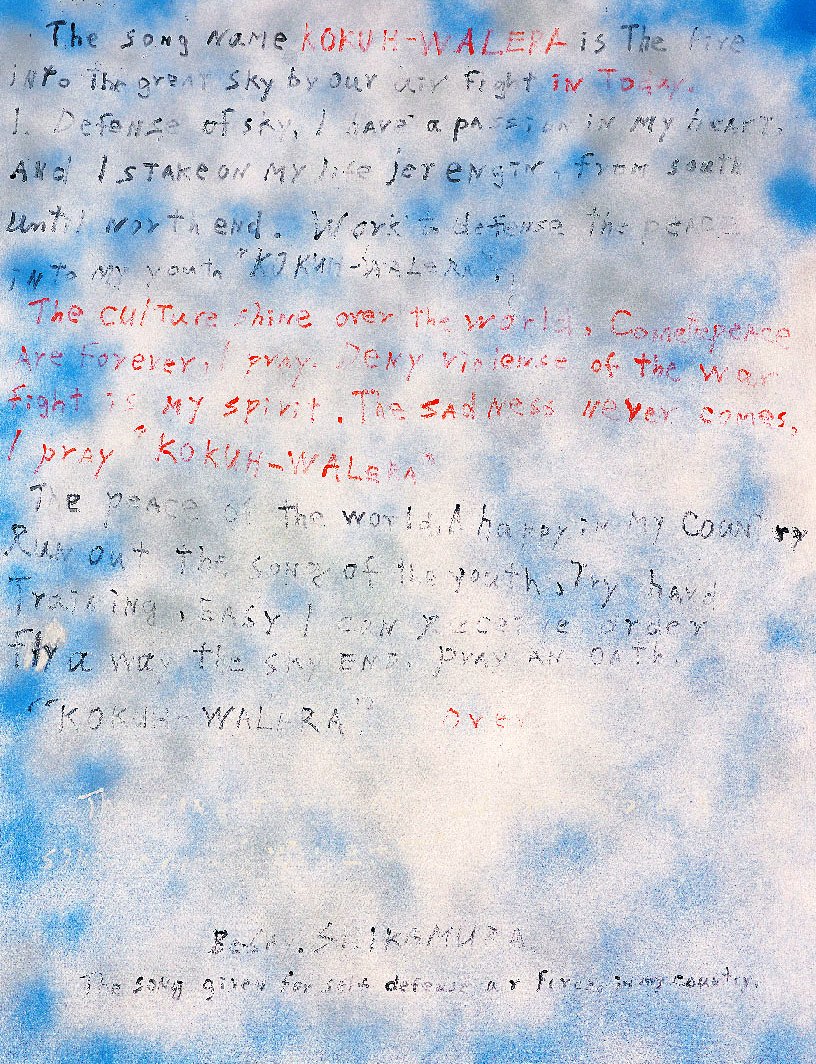 The song Name KOKUH-WALERA is The Fire
into The great sky by our air Fight in Today.
1. Defense of sky, I have a passion in my heart.
And I STAKE ON My life jer ENGIN, from south
Until North end. Work to defense the peace
into My youth "KOKUH-WALERA".
The culTure shine over the world, Come
Are Forever, I pray. DENy violense of the war
fight is My spirit. The SAdNess Never comes,
I pray "KOKUH-WALERA"
The peace of The world, A happy in My Country
RUN out The song of the youth, Try hard
Training, EASy I can receive order
Fly a way the sky END. pray AN OATH.
"KOKUH-WALERA" Over
SHIKAMURA
The song given for self defense air Force, in my country.